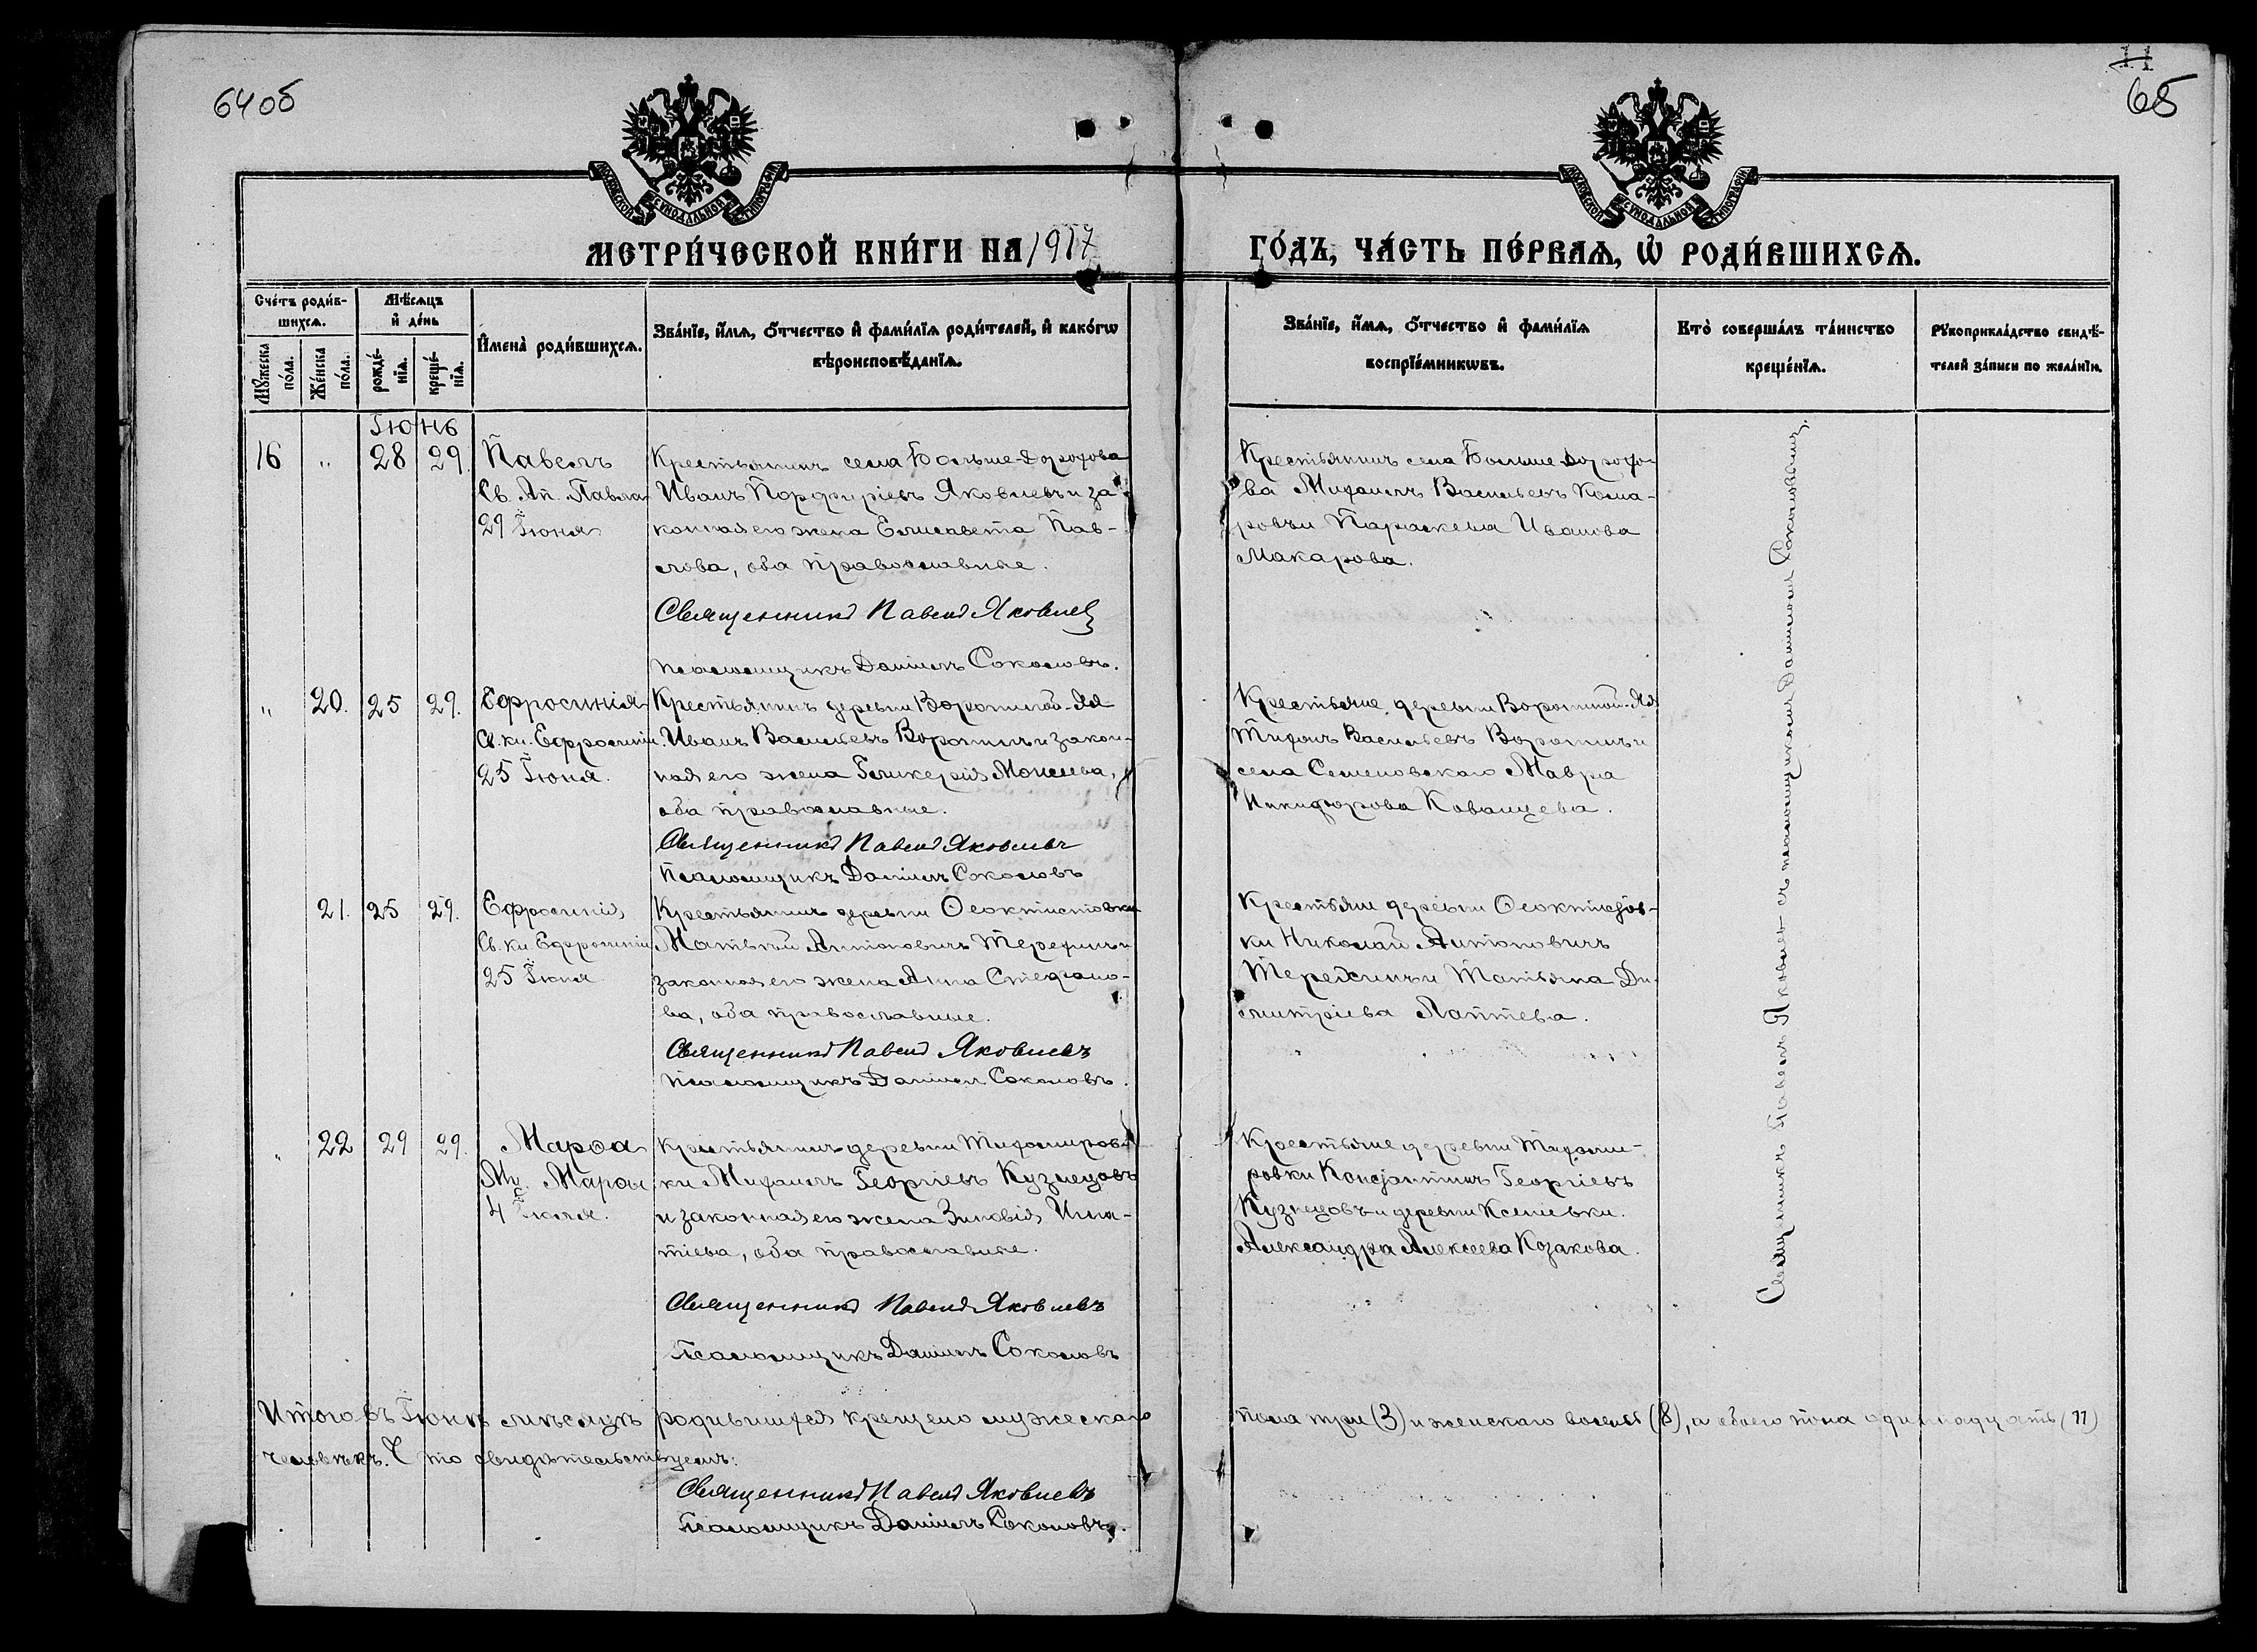 64об
11
65
МОСКОВСКОЙ СѴНОДАЛЬНОЙ ТИПОГРАФІИ
МОСКОВСКОЙ СѴНОДАЛЬНОЙ ТИПОГРАФІИ
МЕТРИ́ЧЕСКОЙ КНИ́ГИ НА 1917
ГО́ДЪ, ЧА́СТЬ ПЕ́РВАѦ, Ѡ҆ РОДИ́ВШИХСѦ.
Сче́тъ роди́в-
шихсѧ.
Мѣ́сѧцъ
и҆ де́нь
Мꙋ́жеска
по́ла.
Же́нска
по́ла.
рожде́-
нїѧ.
креще́-
нїѧ.
И҆мена̀ роди́вшихсѧ.
Зва́нїе, и҆́мѧ, ѻ҆́тчество и҆ фами́лїѧ роди́телей, и҆ како́гѡ
вѣроисповѣ́данїѧ.
Зва́нїе, и҆́мѧ, ѻ҆́тчество и҆ фами́лїѧ
воспрїе́мникѡвъ.
Кто̀ соверша́лъ та́инство
креще́нїѧ.
Рꙋкоприкла́дство свидѣ́-
телей за́писи по жела́нїю.
Іюнь
16 " 28 29. Павелъ
Св. Ап. Павла
29 Іюня
Крестьянинъ села Больше-Дорохова
Иванъ Порфиріевъ Яковлевъ и за-
конная его жена Елисавета Пав-
лова, оба православные.
Священникъ Павелъ Яковлев
псаломщикъ Даніилъ Соколовъ.
Крестьянинъ села Больше-Дорохо-
ва Михаилъ Васильевъ Кома-
ровъ и Параскева Иванова
Макарова.
" 20. 25 29. Ефросинія
Св. кн. Ефросиніи.
25 Іюня.
Крестьянинъ деревни Ворониной-Яя
Иванъ Васильевъ Воронинъ и закон-
ная его жена Гликерія Моисеева,
оба православные.
Священникъ Павелъ Яковлевъ
Псаломщикъ Даніилъ Соколовъ
Крестьяне деревни Ворониной-Яя
Тихонъ Васильевъ Воронинъ и
села Семеновскаго Мавра
Никифорова Кованцева.
21. 25 29. Ефросинія
Св. кн. Ефросиніи
25 Іюня
Крестьянинъ деревни Ѳеоктистовки
Матвѣй Антоновичъ Терехинъ и
законная его жена Анна Стефано-
ва, оба православные.
Священникъ Павелъ Яковлевъ
псаломщикъ Даніилъ Соколовъ.
Крестьяне деревни Ѳеоктистов-
ки Николай Антоновичъ
Терехинъ и Татьяна Ди-
митріева Лаптева.
" 22 29 29. Марѳа
Мц. Марѳы
4 Іюля.
Крестьянинъ деревни Тихомиров-
ки Михаилъ Георгіевъ Кузнецовъ
и законная его жена Зиновія Игна-
тіева, оба православные.
Священникъ Павелъ Яковлевъ
Псаломщикъ Даніилъ Соколовъ
Крестьяне деревни Тихоми-
ровки Константинъ Георгіевъ
Кузнецовъ и деревни Ксеніевки.
Александра Алексеева Козакова.
Священникъ Павелъ Яковлевъ съ псаломщикомъ Даніиломъ Соколовымъ.
Итого въ Іюнѣ мѣсяцѣ родившихся крещено мужескаго пола три (3) и женскаго восемь (8), а обоего пола одиннадцать (11)
человѣкъ. Что свидѣтельствуемъ:
Священникъ Павелъ Яковлевъ
Псаломщикъ Даніилъ Соколовъ.